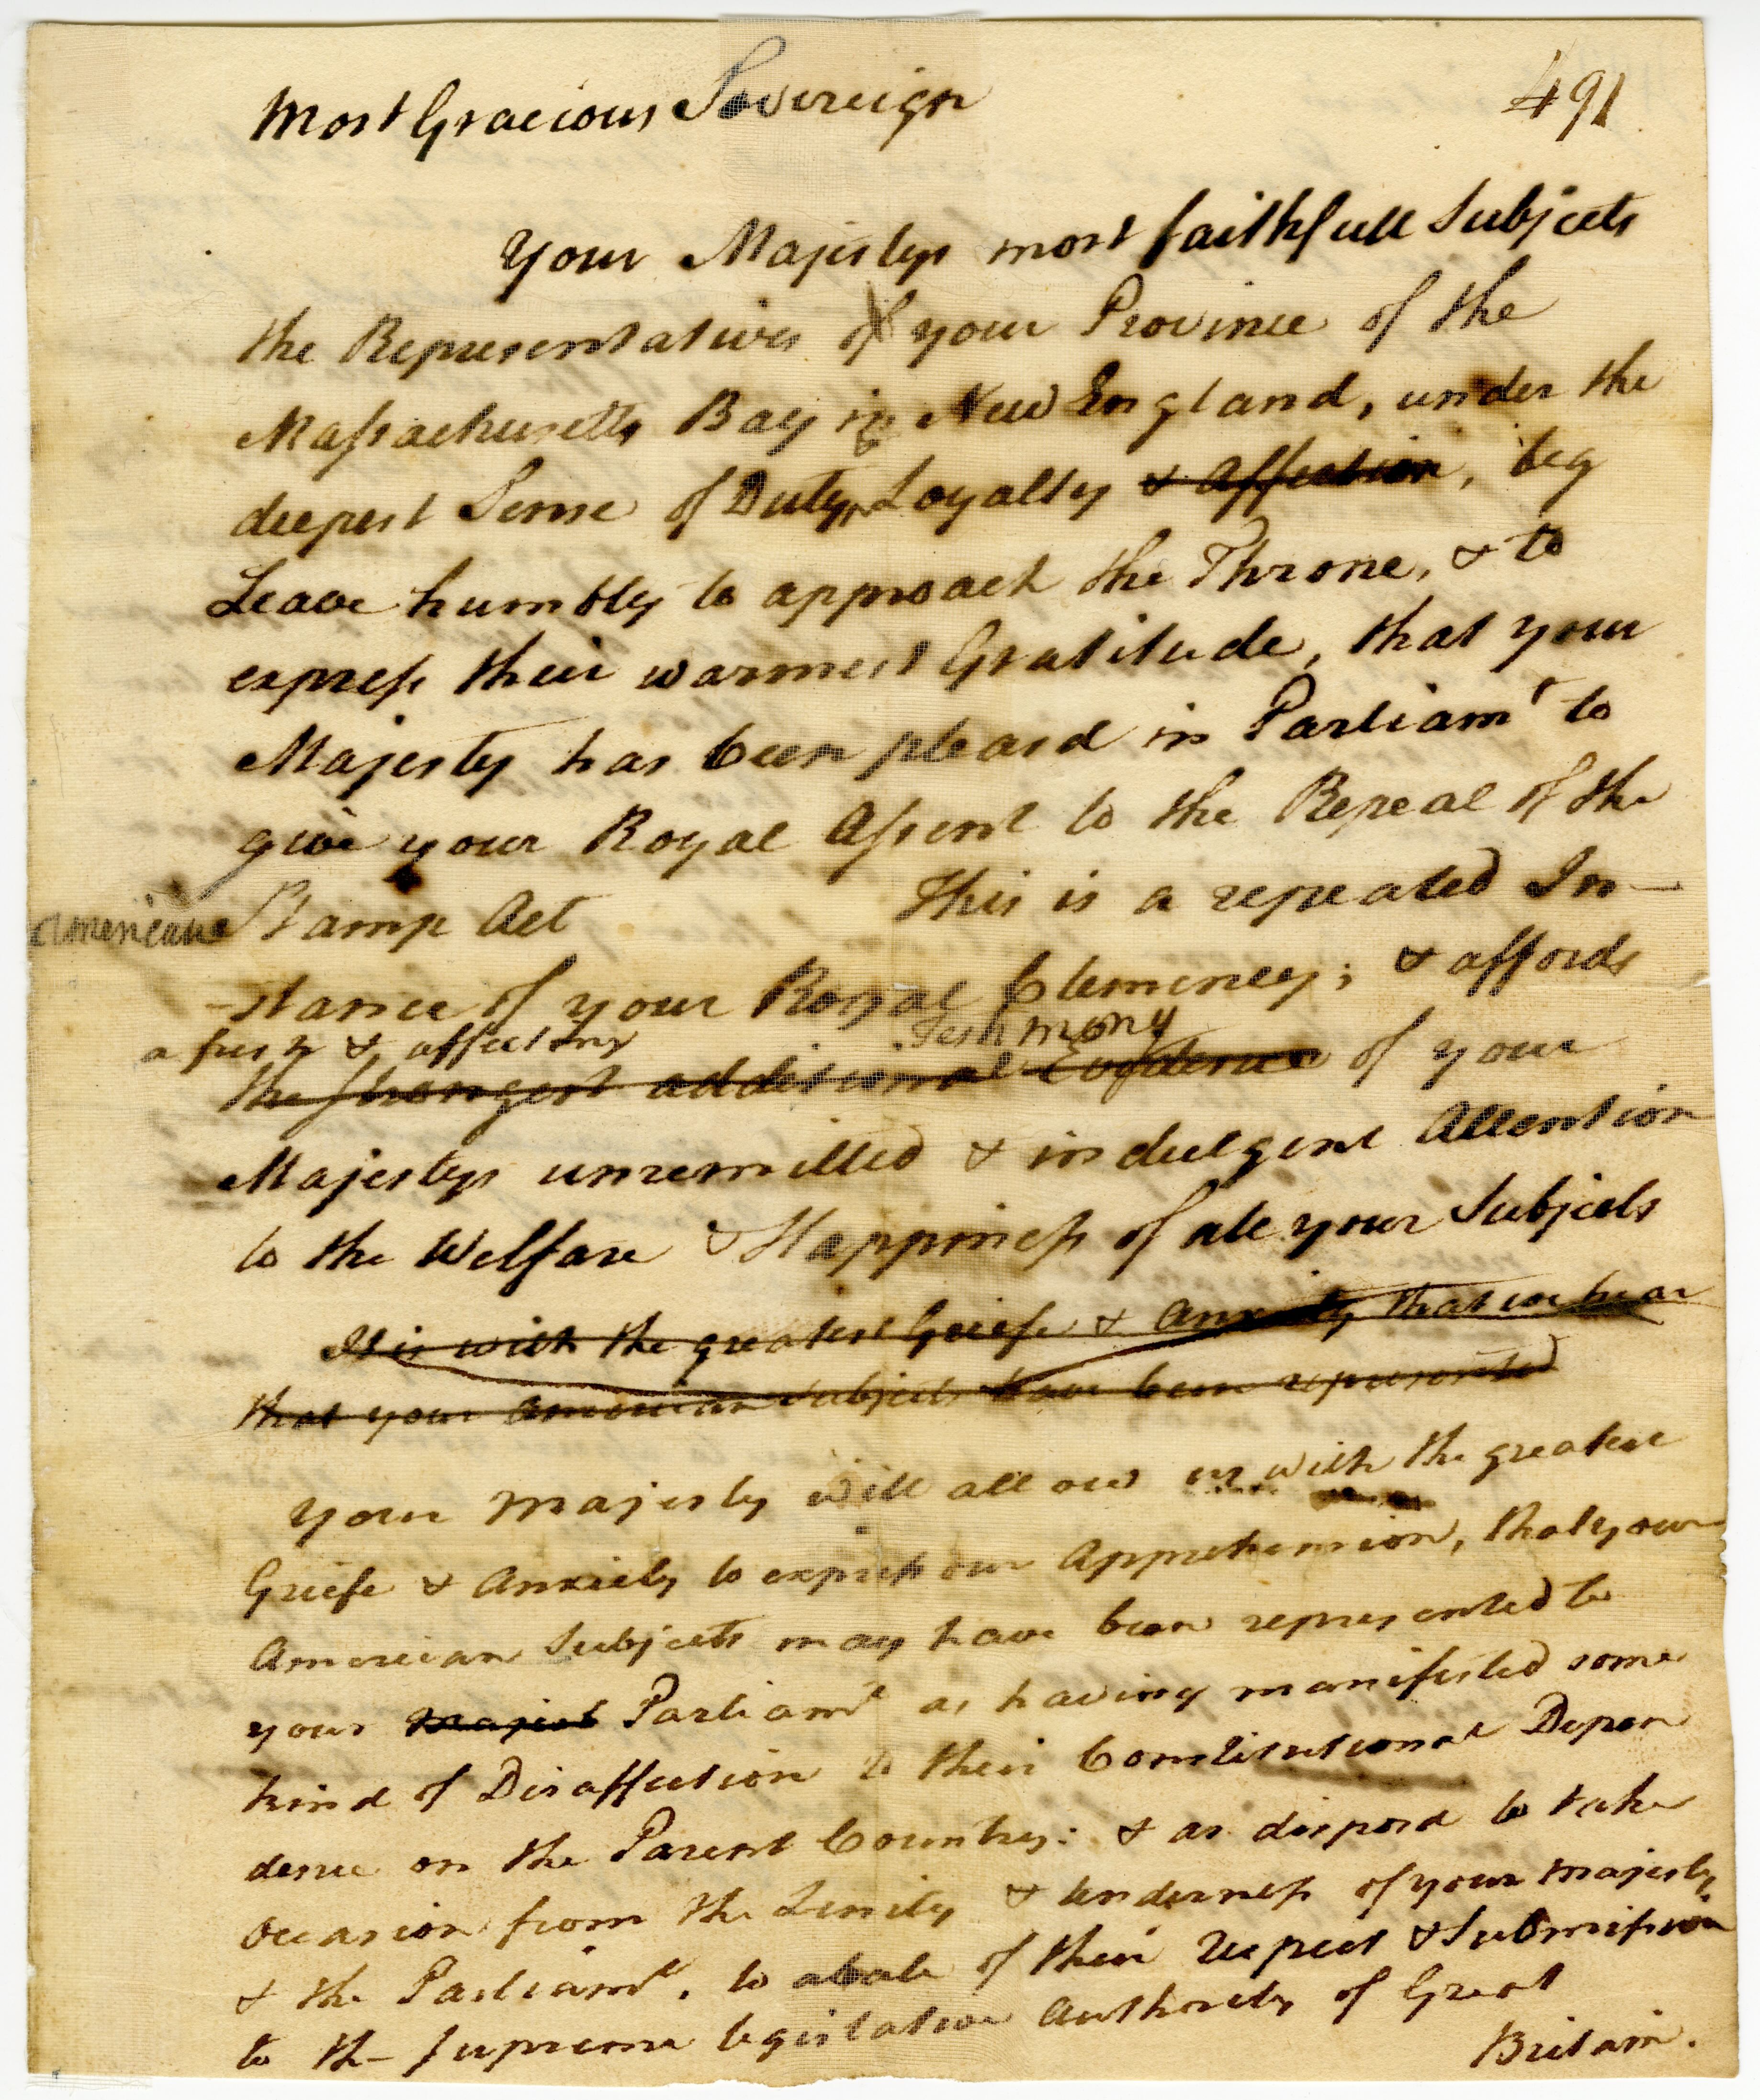 Most Gracious Sovereign
491
Your Majestys most faithfull Subjects
the Representatives of your Province of the
Massachusetts Bay in New England, under the
deepest Sense of Duty, Loyalty & Affection, beg
Leave humbly to approach the Throne, & to
express their warmest Gratitude, that your
Majesty has been pleasd in Parliamt to
give your Royal Assent to the Repeal of the
American Stamp Act This is a repeated In-
-stance of your Royal Clemency; & affords
a fresh & affecting Testimony
the strongest additional Evidence of your
Majestys unremitted & indulgent Attention
to the Welfare & Happiness of all your Subjects
It is with the greatest Griefe & Anxiety that we hear
that your American Subjects have been represented
Your Majesty will allow us with the greatest
Griefe & Anxiety to express our Apprehension, that your
American Subjects may have been represented to
your Majest Parliamt as having manifested some
kind of Disaffection to their Constitutional Depen
dence on the Parent Country: & as disposd to take
Occasion from the Lenity & tenderness of your Majesty
& the Parliamt, to abate of their respect & Submission
to the supreme legislative Authority of Great
Britain.